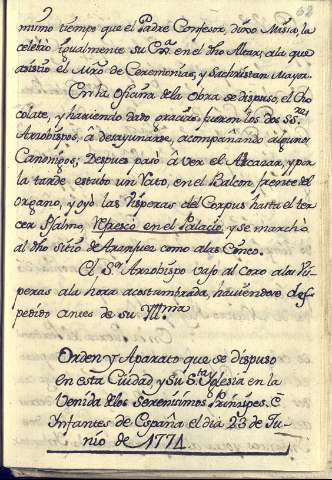 mismo tiempo que el Padre Confesor, dixo Missa, la
celebró igualmente su Cria. en el dho Altar, a la que
asistio el Mro de Ceremonias, y Sachristan Mayor.
En la Oficina de la Obra se dispuso, el Cho
colate, y haviendo dado gracias, fueron los dos Sres
Arzobispos, â desayunarse, acompañando algunos
Canonigos; Despues pasó â vèr el Alcazar, y por
la tarde estubo un Rato, en el Balcon, frente del
organo, y oyó las Visperas del Corpus hasta el ter
cer Psalmo, Refrescó en el Palacio, y se marchó
al dho sitio de Aranjuez como a las Cinco.
El Sr. Arzobispo vajo al Coro a las Vis-
peras a la hora acostumbrada, haviendose des-
pedido antes de su Yllma
Orden y Aparato que se dispuso
en esta Ciudad, y Su Sta. Yglesia en la
Venida de los Serenisimos Prinzipes. è
Infantes de España el dia 23 de Ju-
nio de 1774